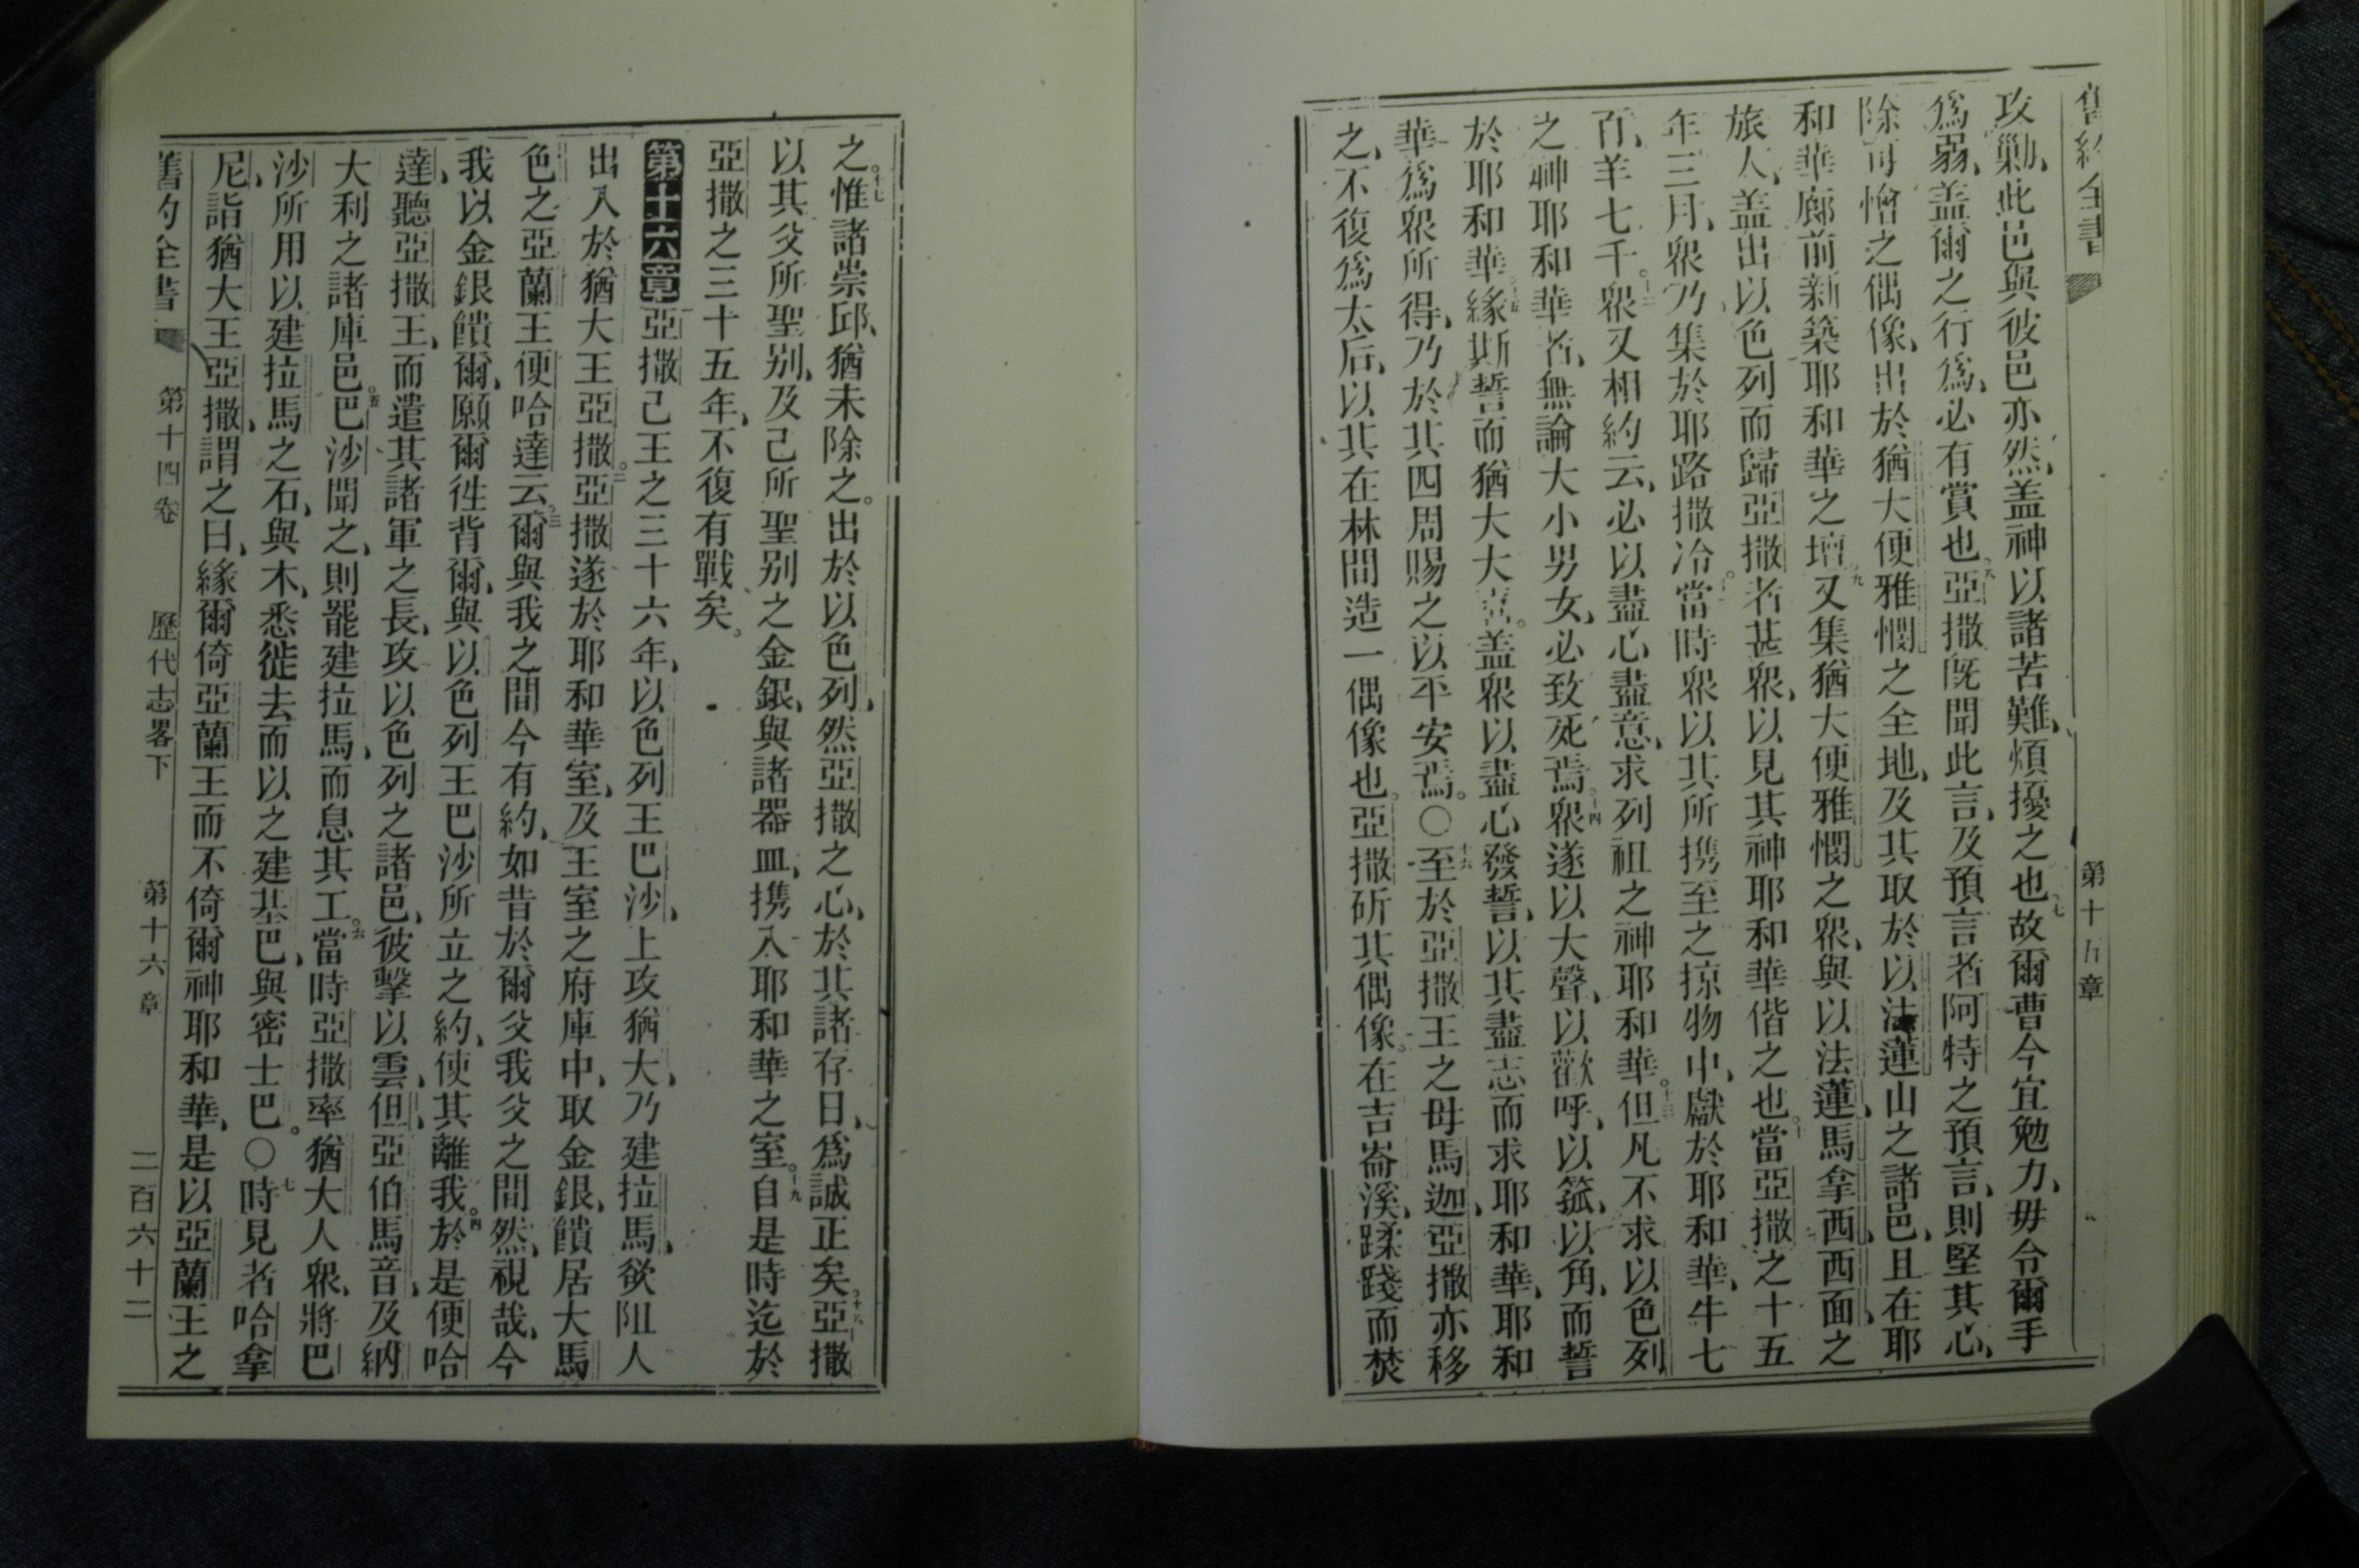 舊約全書 第十五章
攻勦、此邑與彼邑亦然、盖神以諸苦難、煩擾之也。七故爾曹今宜勉力、毋令爾手
爲弱、盖爾之行爲、必有賞也。八亞撒旣聞此言、及預言者阿特之預言、則堅其心、
除可憎之偶像、出於猶大便雅憫之全地、及其取於以法蓮山之諸邑、且在耶
和華廊前新築耶和華之壇。九又集猶大便雅憫之衆、與以法蓮、馬拿西、西面之
旅人、盖出以色列而歸亞撒者甚衆、以見其神耶和華偕之也。十當亞撒之十五
年三月、衆乃集於耶路撒冷。十一當時衆以其所携至之掠物中、獻於耶和華、牛七
百、羊七千。十二衆又相約云、必以盡心盡意、求列祖之神耶和華。十三但凡不求以色列
之神耶和華者、無論大小男女、必致死焉。十四衆遂以大聲、以歡呼、以箛、以角、而誓
於耶和華。十五緣斯誓而猶大大喜。盖衆以盡心發誓、以其盡志而求耶和華、耶和
華爲衆所得、乃於其四周賜之以平安焉。○十六至於亞撒王之母馬迦、亞撒亦移
之、不復爲太后、以其在林間造一偶像也。亞撒斫其偶像。在吉崙溪、蹂踐而焚
之。十七惟諸崇邱、猶未除之。出於以色列、然亞撒之心、於其諸存日、爲誠正矣。十八亞撒
以其父所聖别、及己所聖别之金銀、與諸器皿、携入耶和華之室。十九自是時迄於
亞撒之三十五年、不復有戰矣。
第十六章亞撒己王之三十六年、以色列王巴沙、上攻猶大、乃建拉馬、欲阻人
出入於猶大王亞撒。二亞撒遂於耶和華室、及王室之府庫中、取金銀、饋居大馬
色之亞蘭王便哈達云。三爾與我之間今有約、如昔於爾父我父之間然、視哉、今
我以金銀饋爾、願爾徃背爾、與以色列王巴沙所立之約、使其離我。四於是便哈
達、聽亞撒王、而遣其諸軍之長、攻以色列之諸邑、彼擊以雲、但、亞伯馬音、及納
大利之諸庫邑。五巴沙聞之、則罷建拉馬、而息其工。六當時亞撒率猶大人衆、將巴
沙所用以建拉馬之石、與木、悉徙去而以之建基巴、與密士巴。○七時見者哈拿
尼、詣猶大王亞撒、謂之曰、緣爾倚亞蘭王而不倚爾神耶和華、是以亞蘭王之
舊約全書 第十四卷 歷代志畧下 第十六章 二百六十二